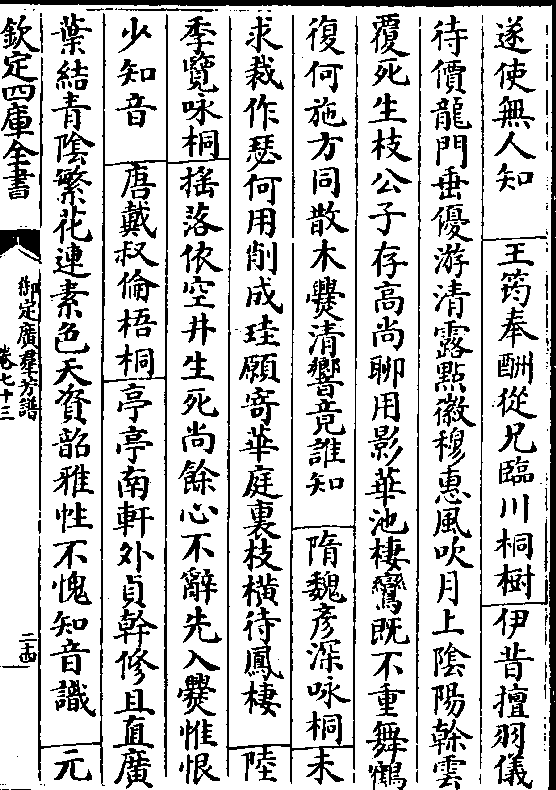 遂使無人知　王筠奉酬從兄臨川桐樹　伊昔擅羽儀
待價龍門垂優游清露點徽穆惠風吹月上陰陽榦雲
覆死生枝公子存高尚聊用影華池棲鸞既不重舞鶴
復何施方同散木爨清響竟誰知　隋魏彥深咏桐　未
求裁作瑟何用削成珪願寄華庭裏枝橫待鳳棲　陸
季覽咏桐　揺落依空井生死尚餘心不辭先入爨惟恨
少知音　唐戴叔倫梧桐　亭亭南軒外貞幹修且直廣
葉結青陰繁花連素色天資韶雅性不愧知音識　元
欽定四庫全書
御定廣羣芳譜
卷七十三
二十四